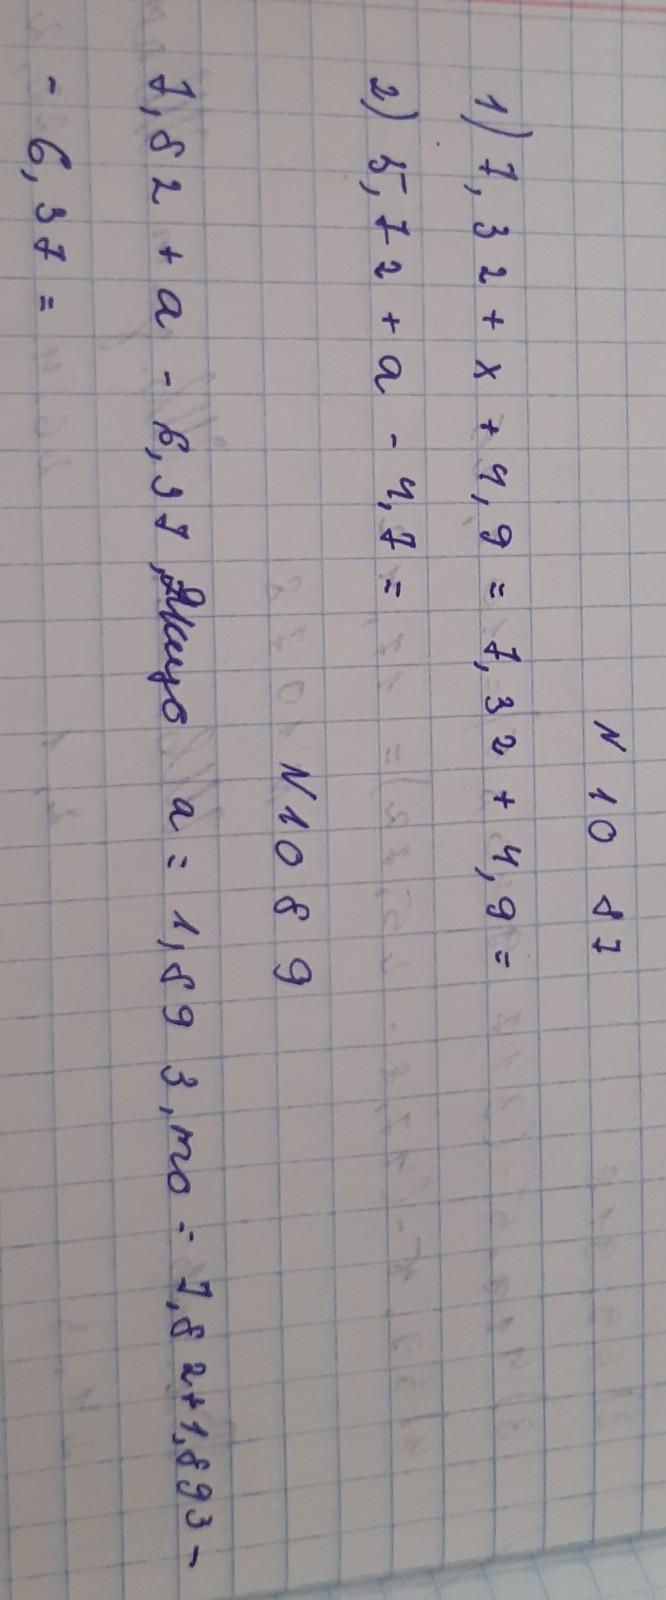 N 1087
1) 7,32 + x + 4,9 = 7,32 + 4,9 =
2) 5,72 + a - 4,7 =
N1089
7,82 + a - 6,37, Якщо a = 1,893, то = 7,82+1,893 -
- 6,37 =